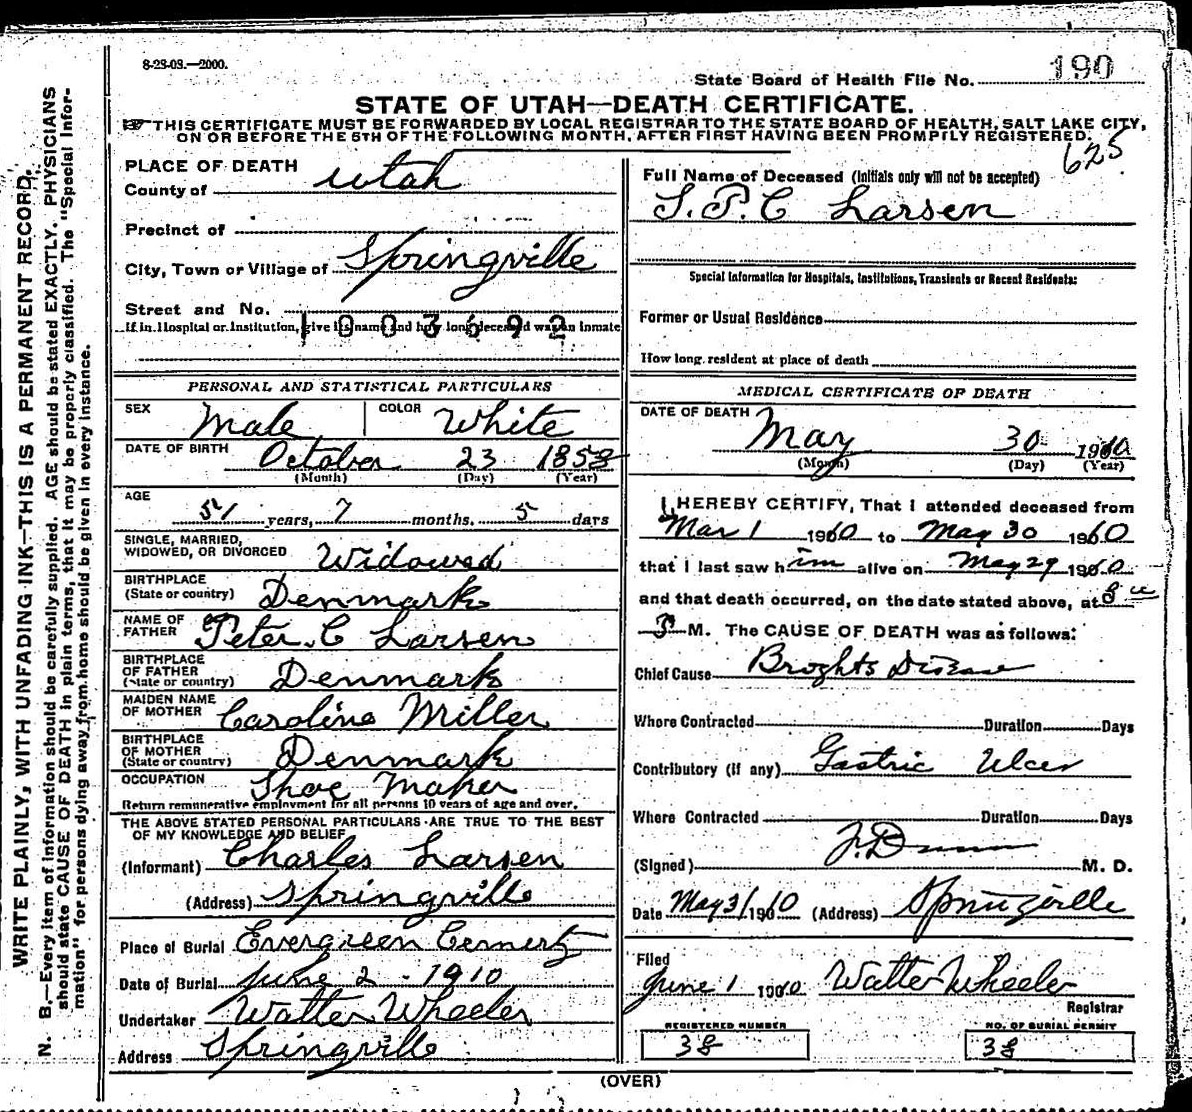 8-23-03.—2000.
State Board of Health File No. 190
STATE OF UTAH—DEATH CERTIFICATE.
THIS CERTIFICATE MUST BE FORWARDED BY LOCAL REGISTRAR TO THE STATE BOARD OF HEALTH, SALT LAKE CITY,
ON OR BEFORE THE 5TH OF THE FOLLOWING MONTH, AFTER FIRST HAVING BEEN PROMPTLY REGISTERED.
625
PLACE OF DEATH
County of Utah
Precinct of
City, Town or Village of Springville
Street and No.
1003692
If in Hospital or Institution, give its name and how long deceased was an inmate
PERSONAL AND STATISTICAL PARTICULARS
SEX Male COLOR White
DATE OF BIRTH October 23 1858
(Month) (Day) (Year)
AGE
51 years, 7 months, 5 days
SINGLE, MARRIED,
WIDOWED, OR DIVORCED Widowed
BIRTHPLACE
(State or country) Denmark
NAME OF
FATHER Peter C Larsen
BIRTHPLACE
OF FATHER
(State or country) Denmark
MAIDEN NAME
OF MOTHER Caroline Miller
BIRTHPLACE
OF MOTHER
(State or country) Denmark
OCCUPATION Shoe Maker
Return remunerative employment for all persons 10 years of age and over.
THE ABOVE STATED PERSONAL PARTICULARS ARE TRUE TO THE BEST
OF MY KNOWLEDGE AND BELIEF
(Informant) Charles Larsen
(Address) Springville
Place of Burial Evergreen Cemertz
Date of Burial June 2 - 1910
Undertaker Walter Wheeler
Address Springville
Full Name of Deceased (Initials only will not be accepted)
S.P.C Larsen
Special Information for Hospitals, Institutions, Transients or Recent Residents:
Former or Usual Residence
How long resident at place of death
MEDICAL CERTIFICATE OF DEATH
DATE OF DEATH
May 30 1910
(Month) (Day) (Year)
I HEREBY CERTIFY, That I attended deceased from
Mar 1 1910 to May 30 1910
that I last saw him alive on May 29 1910
and that death occurred, on the date stated above, at 8
P M. The CAUSE OF DEATH was as follows:
Chief Cause Broghts Disease
Where Contracted Duration Days
Contributory (if any) Gastric Ulcer
Where Contracted Duration Days
(Signed) F. Dunn M. D.
Date May 31 1910 (Address) Springville
Filed
June 1 1910 Walter Wheeler
Registrar
REGISTERED NUMBER
38
NO. OF BURIAL PERMIT
38
(OVER)
WRITE PLAINLY, WITH UNFADING INK—THIS IS A PERMANENT RECORD.
N. B.—Every item of information should be carefully supplied. AGE should be stated EXACTLY. PHYSICIANS
should state CAUSE OF DEATH in plain terms, that it may be properly classified. The "Special Infor-
mation" for persons dying away from home should be given in every instance.